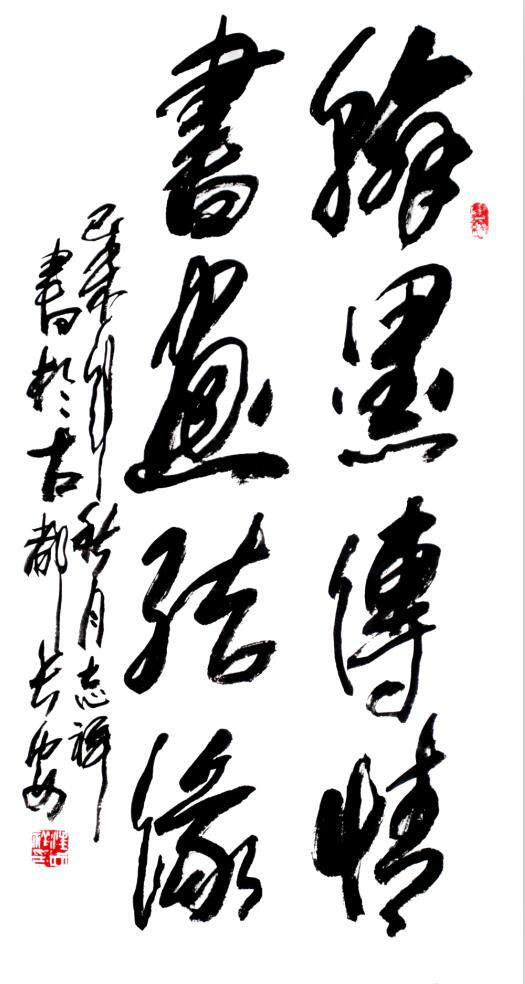 翰墨傳情
書畫結緣
秋月志祥
書於古都长安